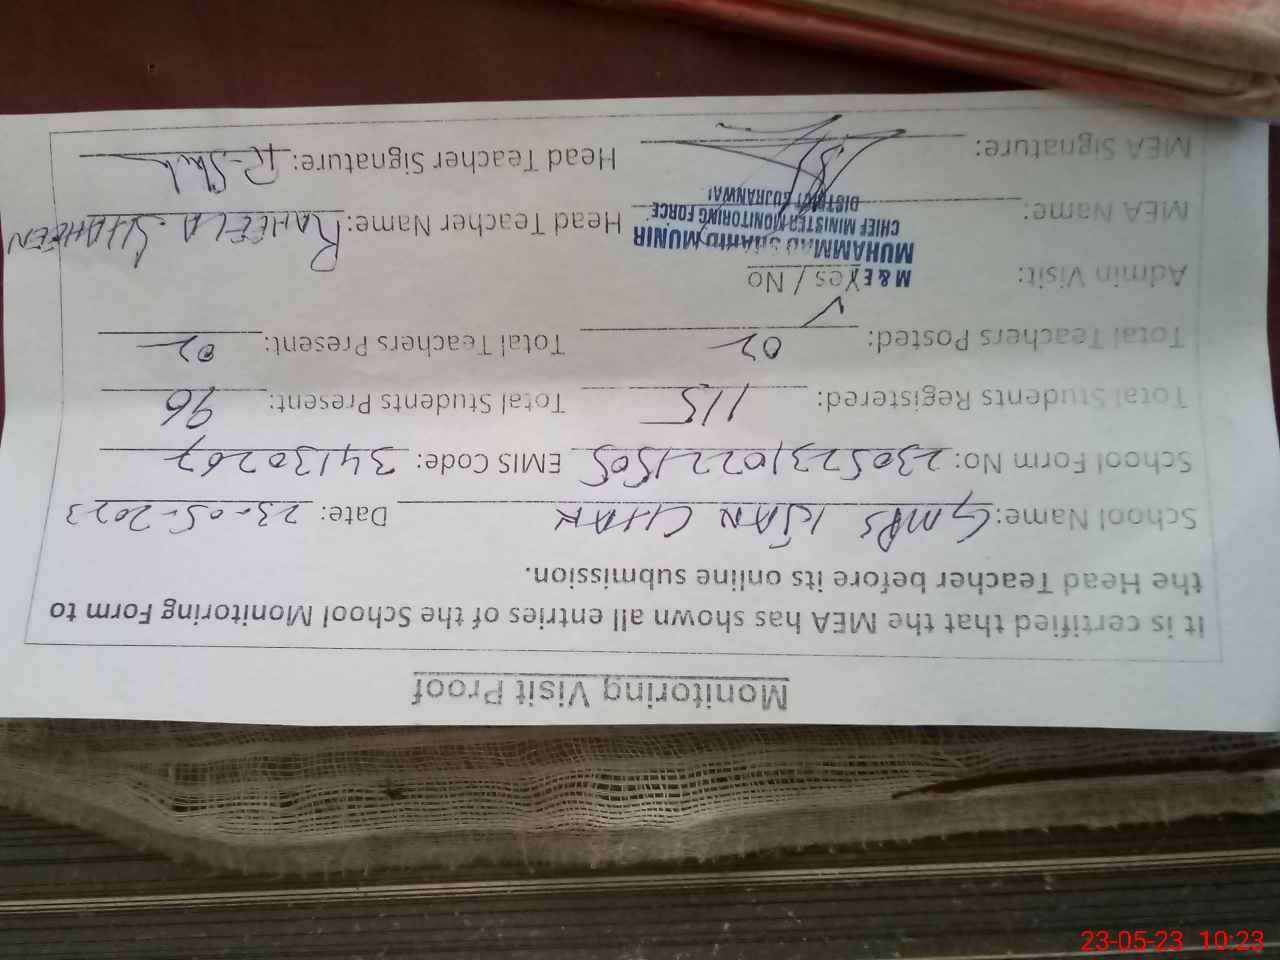 Monitoring Visit Proof
It is certified that the MEA has shown all entries of the School Monitoring Form to
the Head Teacher before its online submission.
School Name: GMPS CHAK Date: 23-05-2023
School Form No: 23052310221505 EMIS Code: 34130267
Total Students Registered: 115 Total Students Present: 96
Total Teachers Posted: 02 Total Teachers Present: 02
Admin Visit: Yes / No ✓
M & E
MUHAMMAD SHAHID MUNIR
CHIEF MINISTER MONITORING FORCE
DISTRICT GUJRANWAL
MEA Name: Head Teacher Name: RAHEELA SHAHEEN
MEA Signature: Head Teacher Signature:
23-05-23 10:23